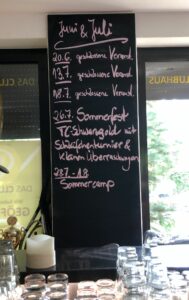 Juni & Juli
20.6. geschlossene Veranst.
13.7. geschlossene Veranst.
18.7. geschlossene Veranst.
26.7. Sommerfest
TC-Schwarzgold mit
Schleifchenturnier &
kleinen Überraschungen
28.7.-1.8.
Sommercamp
CLUBHAUS
DAS CLUB